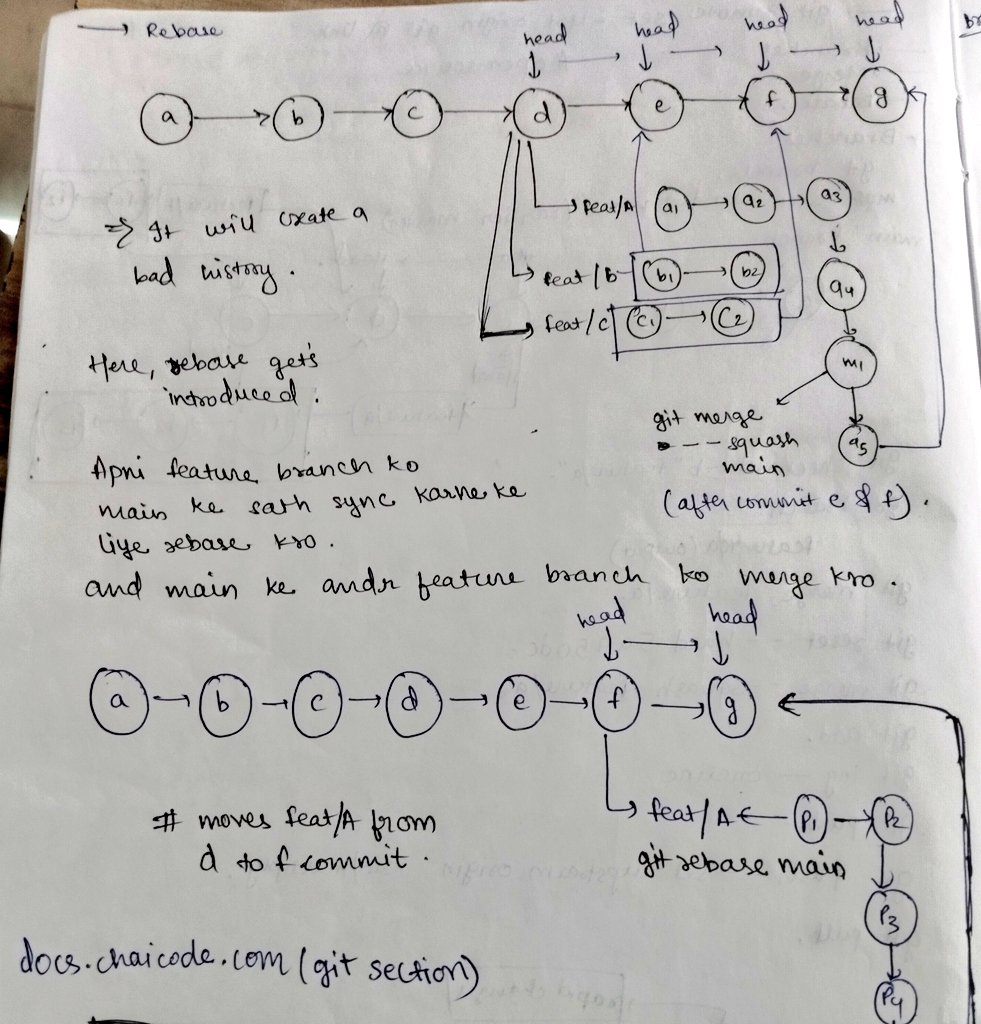 → Rebase
head head head head
a b c d e f g
feat/A a1 a2 a3
⇒ It will create a
bad history.
feat/B b1 b2
a4
feat/C C1 C2
Here, rebase gets
introduced.
m1
git merge
--- squash
main
a5
(after commit e & f).
Apni feature branch ko
main ke sath sync karne ke
liye rebase kro.
and main ke andr feature branch ko merge kro.
head head
a b c d e f g
# moves feat/A from
d to f commit.
feat/A P1 P2
git rebase main
P3
docs.chaicode.com (git section)
P4